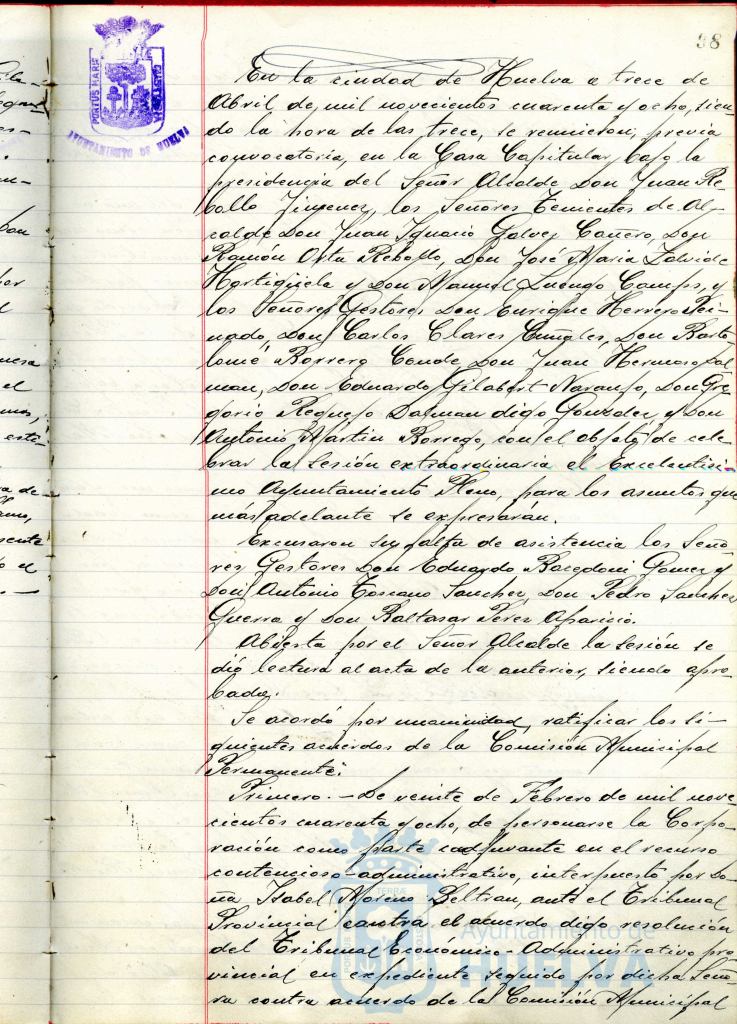 98
PORTUS MARIS
AYUNTAMIENTO DE HUELVA
En la ciudad de Huelva a trece de
Abril de mil novecientos cuarenta y ocho, sien-
do la hora de las trece, se reunieron, previa
convocatoria, en la Casa Capitular, bajo la
presidencia del Señor Alcalde Don Juan Re-
bollo Jimenez, los Señores Tenientes de Al-
calde Don Juan Ignacio Galvez Cañero, Don
Ramon Orta Rebollo, Don José Maria
Hortigüela y Don Manuel Luengo Campos, y
los Señores Gestores Don Enrique Herrero Pei-
nado, Don Carlos Clares Don Barto-
lomé Borrero Conde, Don Juan Hermoso Dal-
man, Don Eduardo Gilabert Naranjo, Don Gre-
gorio Requejo Dalman digo Gonzalez, y Don
Antonio Martin Borrego, con el objeto de cele-
brar la sesión extraordinaria el Excelentisi-
mo Ayuntamiento Pleno, para los asuntos que
más adelante se expresarán.
Excusaron su falta de asistencia los Seño-
res Gestores Don Eduardo Gomez y
Don Antonio Toscano Sanchez, Don Pedro Sanchez
Guerra y Don Baltasar Perez Aparicio.
Abierta por el Señor Alcalde la sesión se
dió lectura al acta de la anterior, siendo apro-
bada.
Se acordó por unanimidad, ratificar los si-
guientes acuerdos de la Comisión Municipal
Permanente:
Primero.- De veinte de Febrero de mil nove-
cientos cuarenta y ocho, de personarse la Corpo-
ración como parte coadyuvante en el recurso
contencioso-administrativo, interpuesto por Do-
ña Isabel Moreno Beltran, ante el Tribunal
Provincial contra el acuerdo digo resolución
del Tribunal Económico-Administrativo pro-
vincial en expediente seguido por dicha Seño-
ra contra acuerdo de la Comisión Municipal
Ayuntamiento de
HUELVA